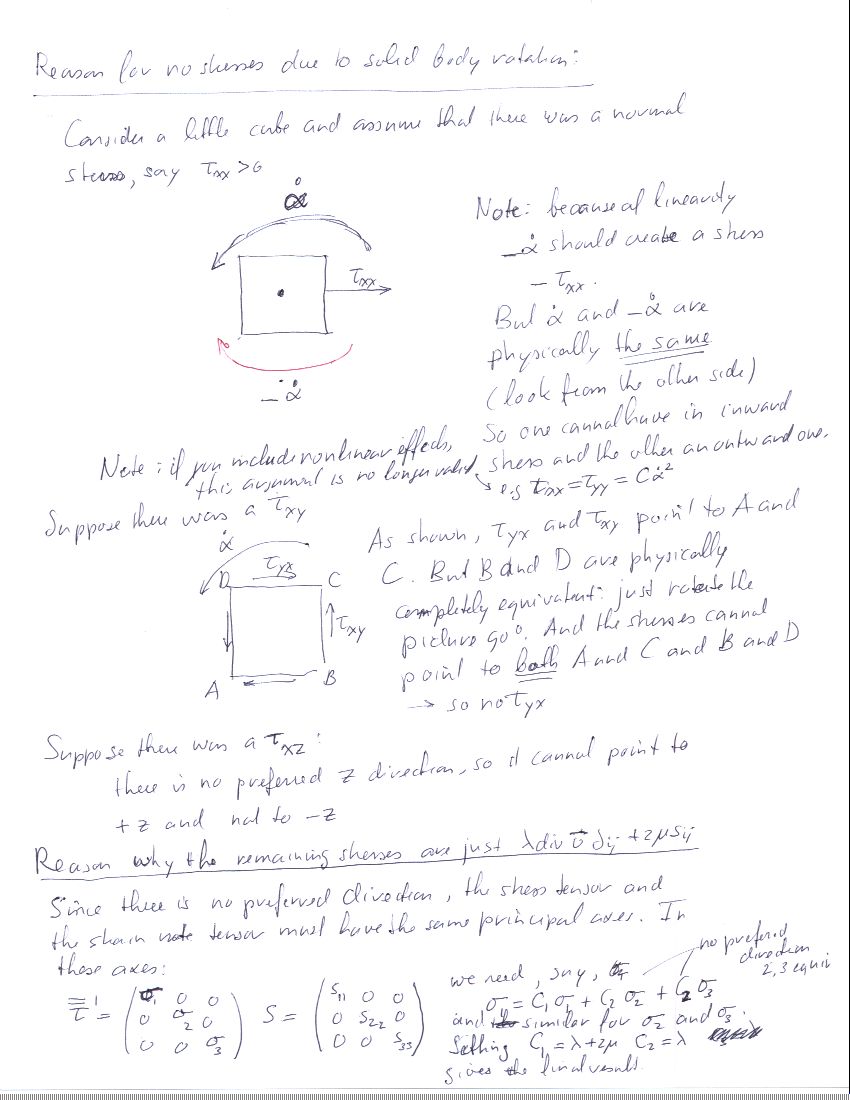 Reason for no stresses due to solid body rotation:
Consider a little cube and assume that there was a normal
stress, say τxx > 0
α̇
τxx
− α̇
Note: because of linearity
−α̇ should create a stress
− τxx.
But α̇ and −α̇ are
physically the same
(look from the other side)
So one cannot have in inward
stress and the other an outward one.
Note: if you include nonlinear effects,
this argument is no longer valid
e.g τxx = τyy = Cα̇²
Suppose there was a τxy
α̇
D τyx C
τxy
A B
As shown, τyx and τxy point to A and
C. But B and D are physically
completely equivalent: just rotate the
picture 90°. And the stresses cannot
point to both A and C and B and D
→ so no τyx
Suppose there was a τxz:
there is no preferred z direction, so it cannot point to
+z and not to −z
Reason why the remaining stresses are just λ div v⃗ δij + 2μSij
Since there is no preferred direction, the stress tensor and
the strain rate tensor must have the same principal axes. In
these axes:
τ' = (σ1 0 0 S = (S11 0 0
0 σ2 0 0 S22 0
0 0 σ3) 0 0 S33)
we need, say,
σ1 = C1 σ1 + C2 σ2 + C2 σ3
no preferred
direction
2,3 equiv
and similar for σ2 and σ3.
Setting C1 = λ+2μ C2 = λ
gives the final result.